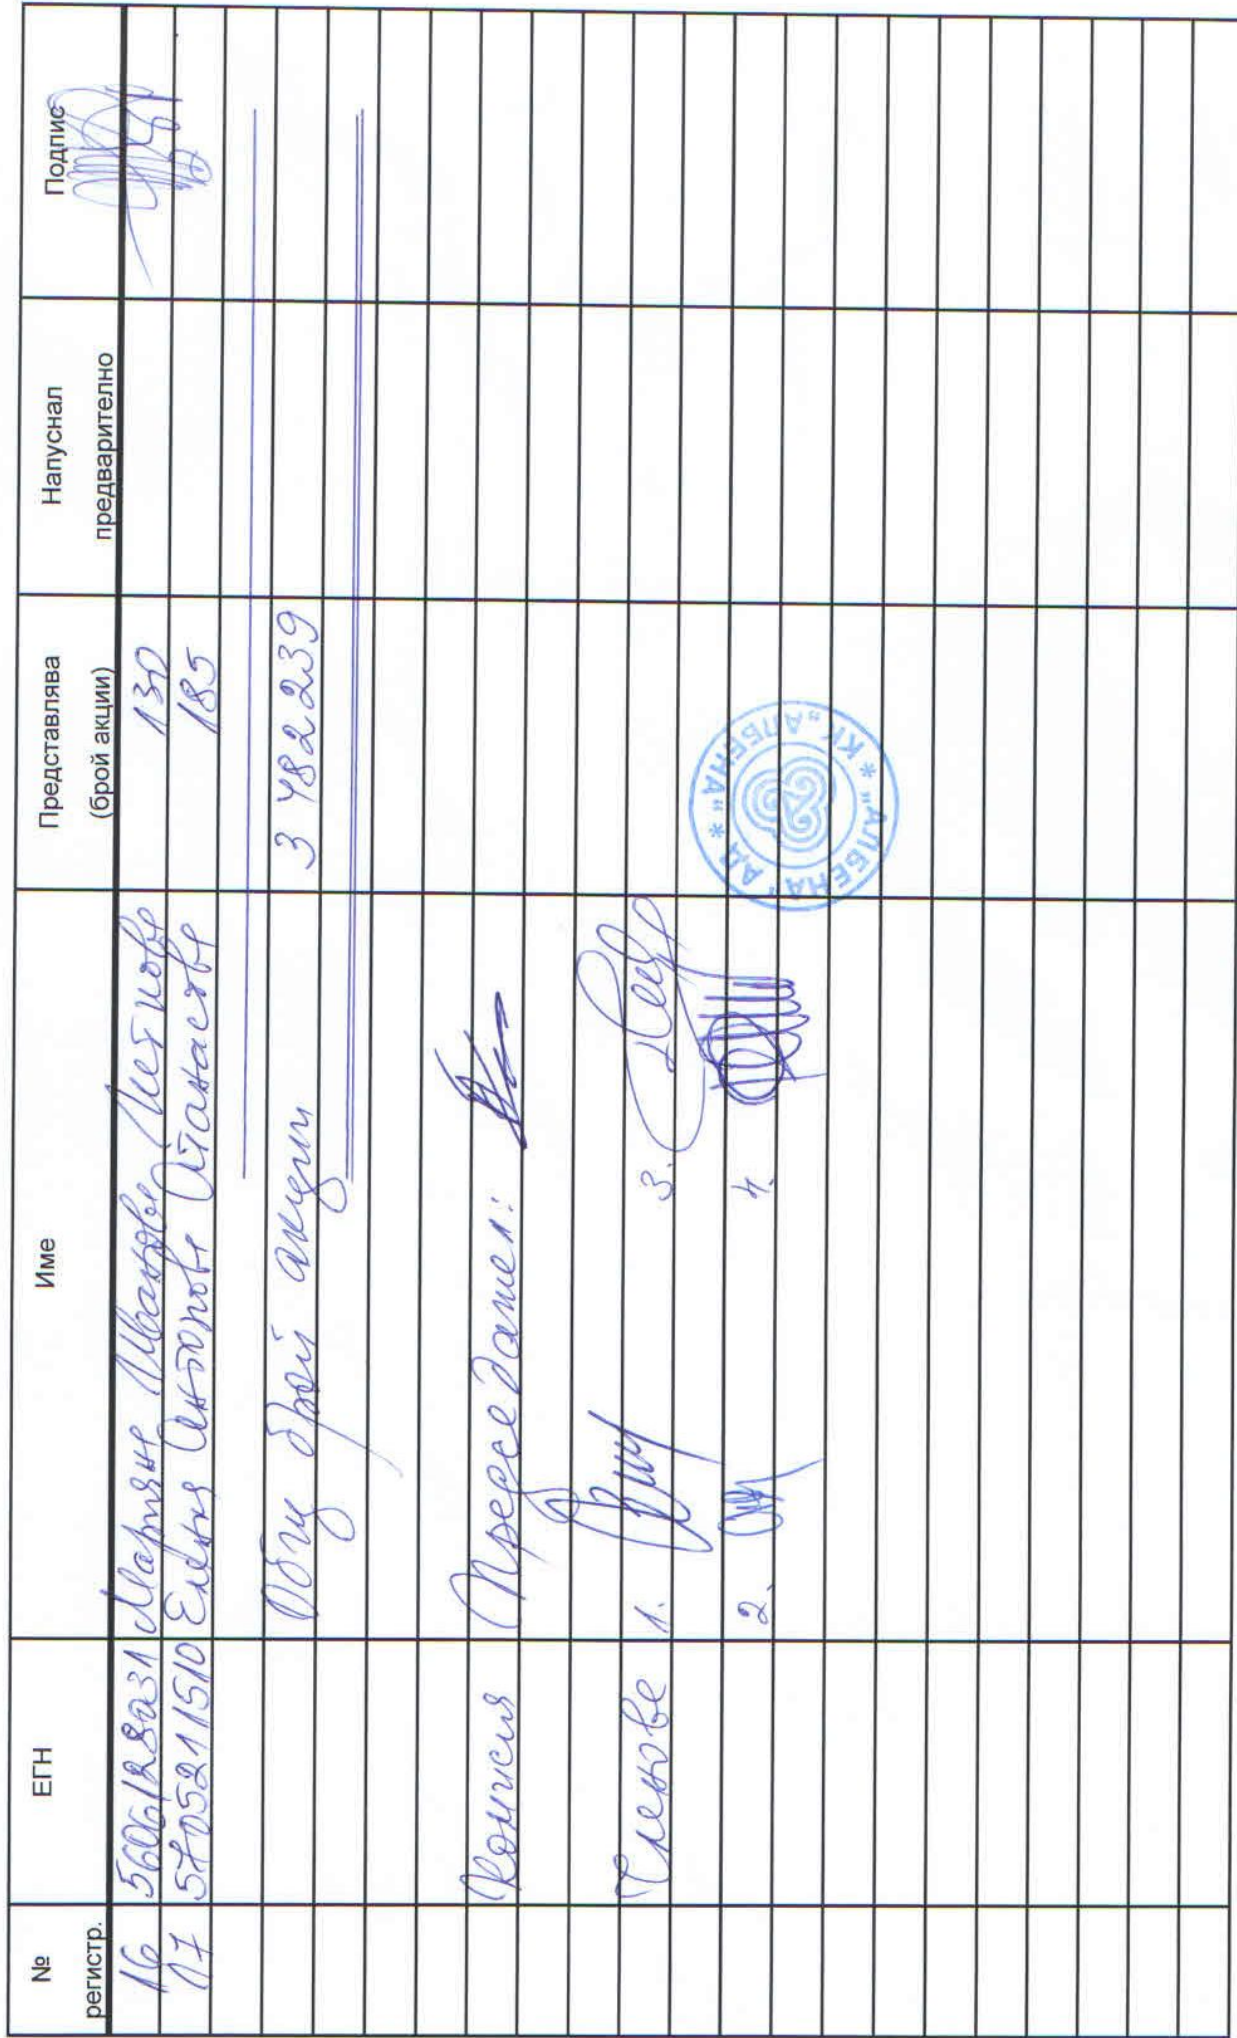 № регистр. ЕГН Име Представлява (брой акции) Напуснал предварително Подпис
16 5606128031 Марияна Иванова 130
17 5705211510 Елена Антонова Атанасова 185
Общ брой акции 3 482 239
Комисия Председател:
Членове 1. 3.
2. 4.
"АЛБЕНА" АД * КК "АЛБЕНА" *